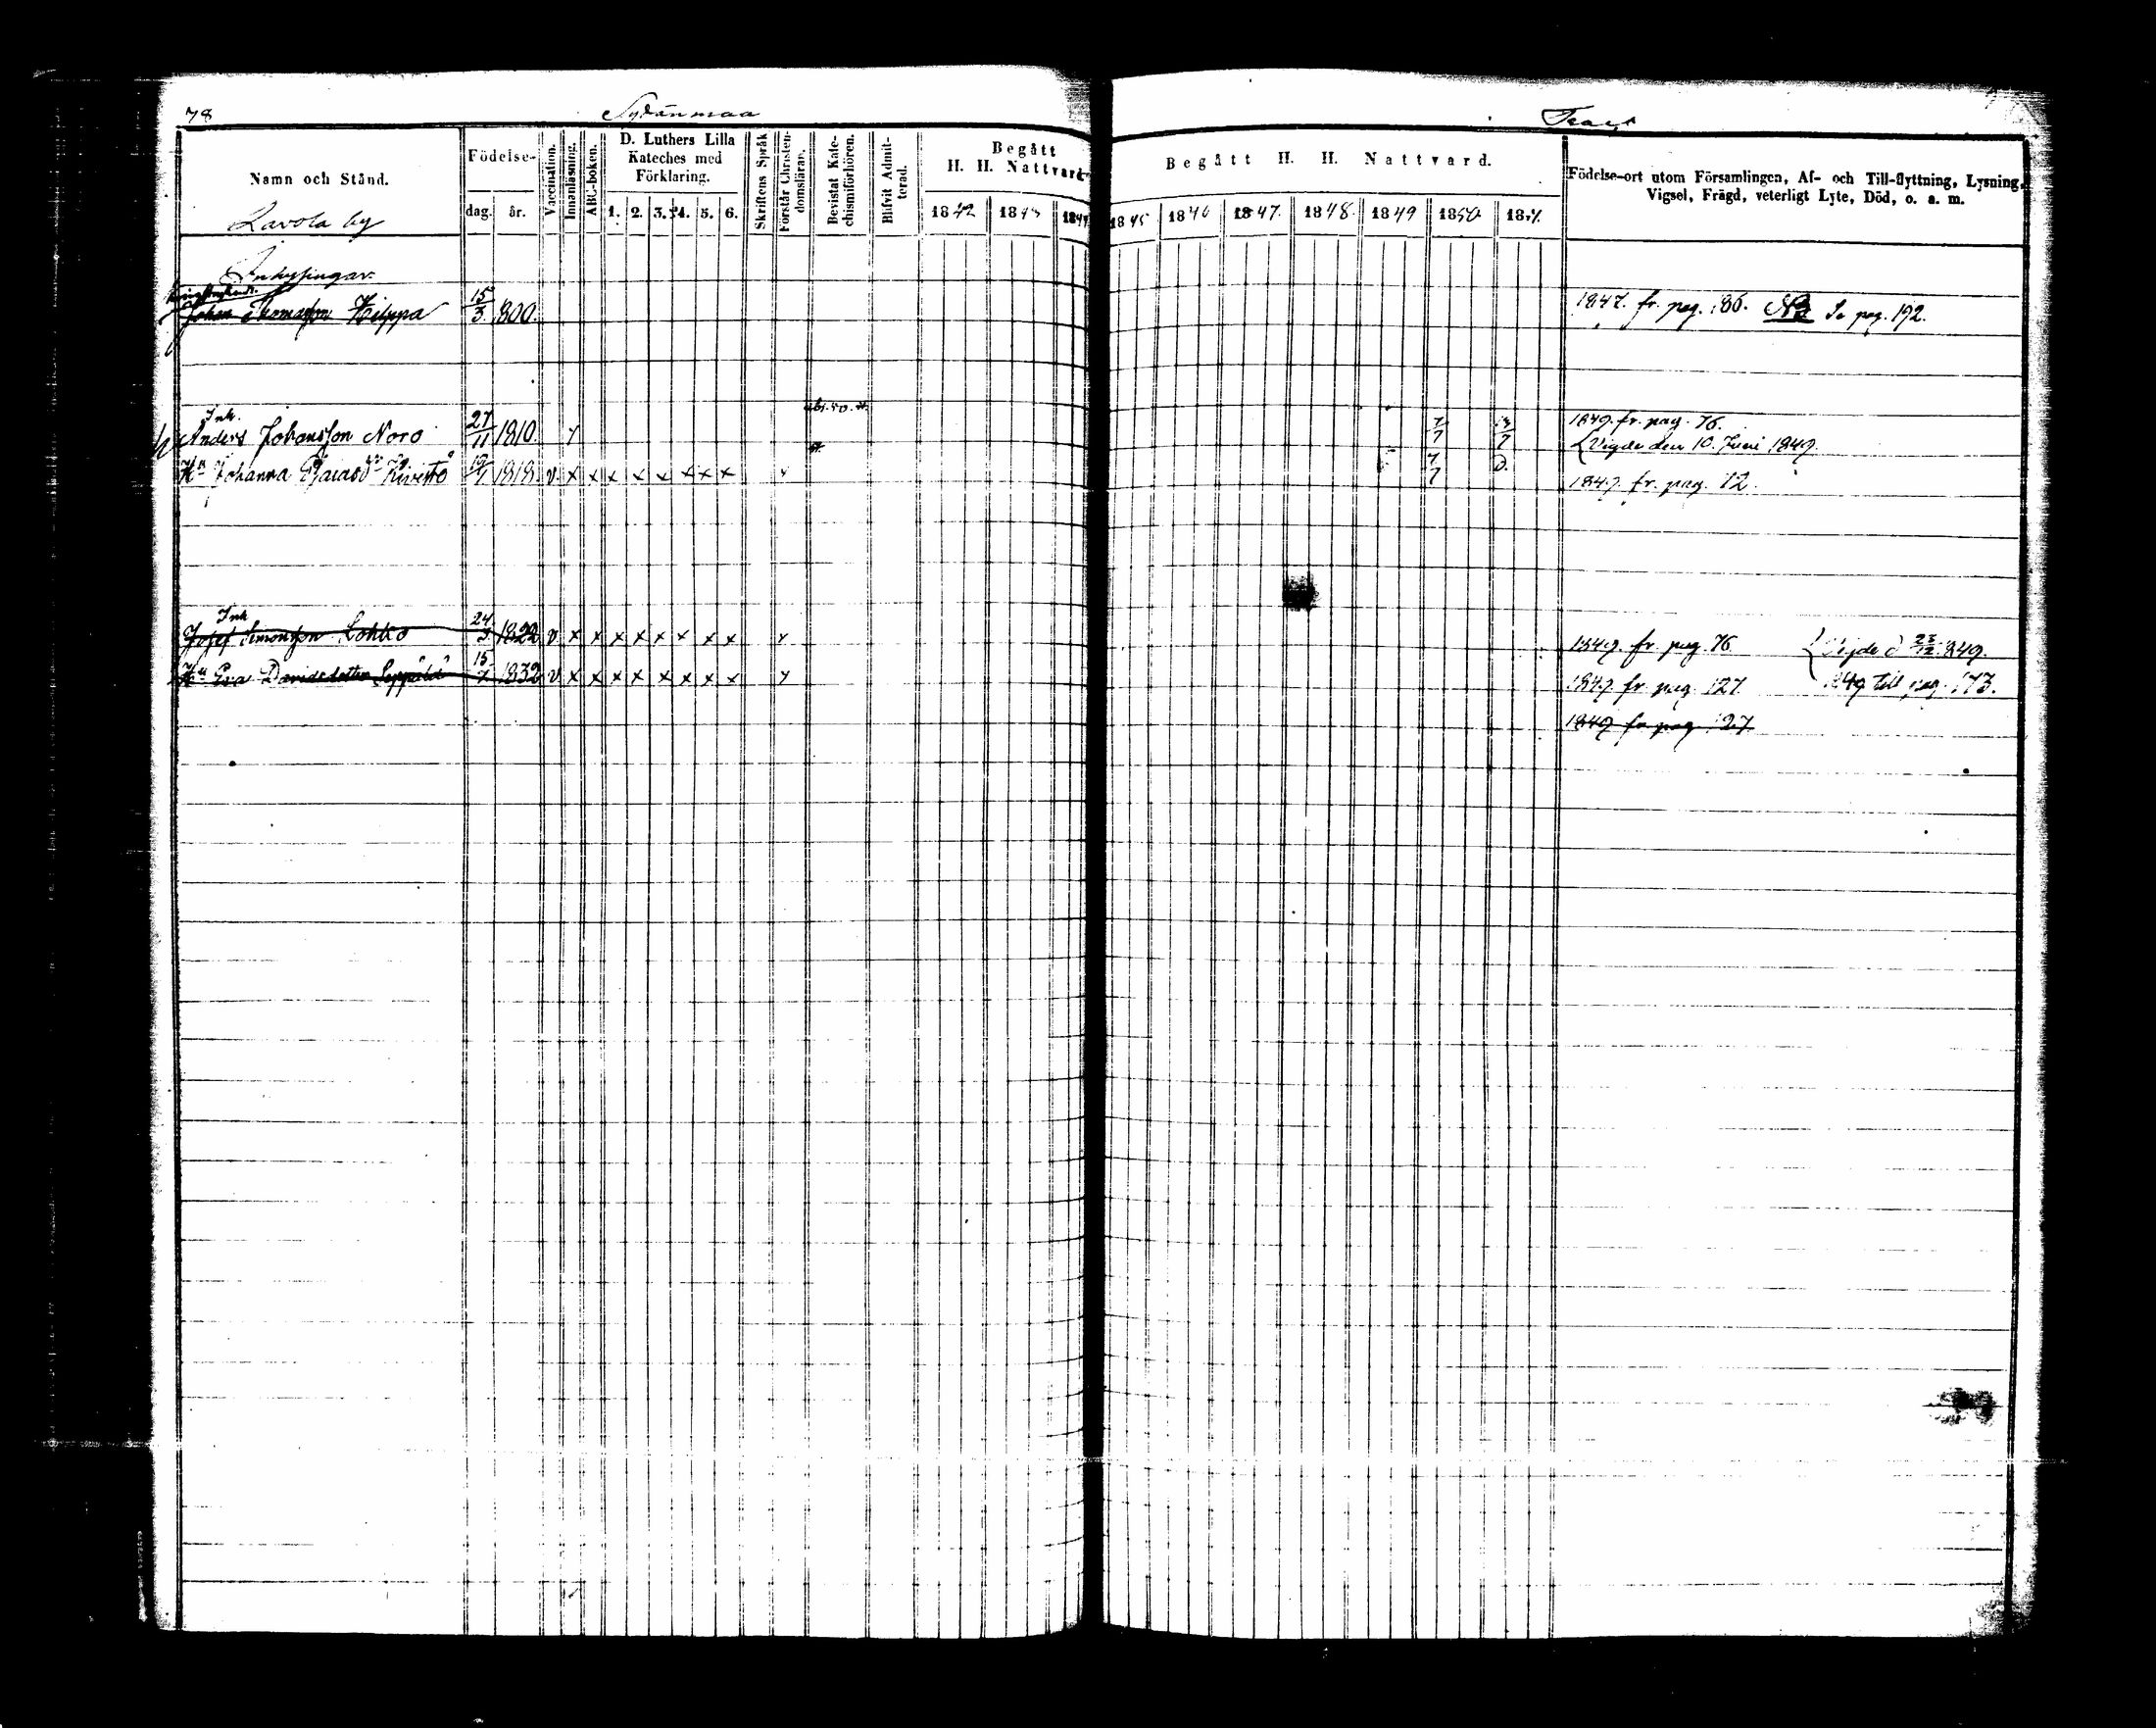 78
Sydänmaa
Tract
Namn och Stånd.
Lavola by
Födelse-
dag. år.
Vaccination.
Innanläsning.
ABC-boken.
D. Luthers Lilla
Kateches med
Förklaring.
1. 2. 3. 4. 5. 6.
Skriftens Språk
Förstår Christen-
domsläran.
Bevistat Kate-
chismiförhören.
Blifvit Admit-
terad.
Begått
H. H. Nattvard
1842 1843 1844
Begått H. H. Nattvard.
1845 1846 1847. 1848. 1849 1850. 1851.
Födelse-ort utom Församlingen, Af- och Till-flyttning, Lysning,
Vigsel, Frägd, veterligt Lyte, Död, o. a. m.
Inhysingar
Johan Thomasson Hilppa 15/3. 1800. 1847. fr. pag. 186. Se pag. 192.
Inh.
Anders Johansson Noro 27/11 1810. 1849. fr. pag. 76.
Vigde den 10. Juni 1849.
Hu Johanna Kivistö 1818. v. x x x x x x x x 1849. fr. pag. 12.
Inh
Josef Simonsson Lohko 24/3 1822 v x x x x x x x x 1849. fr. pag. 76 Vigde d 23/12 1849.
Hu Eva Davidsdotter Seppälä 15/7 1832 v x x x x x x x x 1849 fr. pag. 127 1849 till pag. 173.
1849 fr pag 127